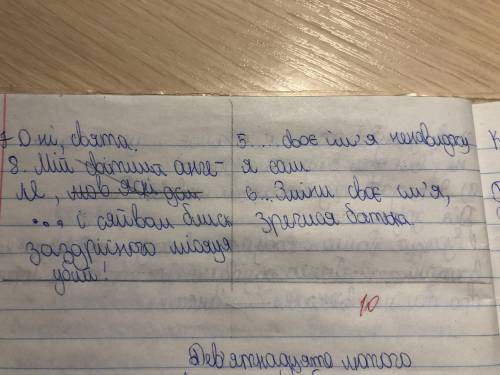 7. О ні, свята.
8. Мій світила анге-
ле, мов
... і сяйвом блиск
заздрісного місяця
убий!
5. ... своє ім'я ненавиджу
я сам
6... Зміни своє ім'я,
зречися батька
10
Дев'ятнадцяте лютого